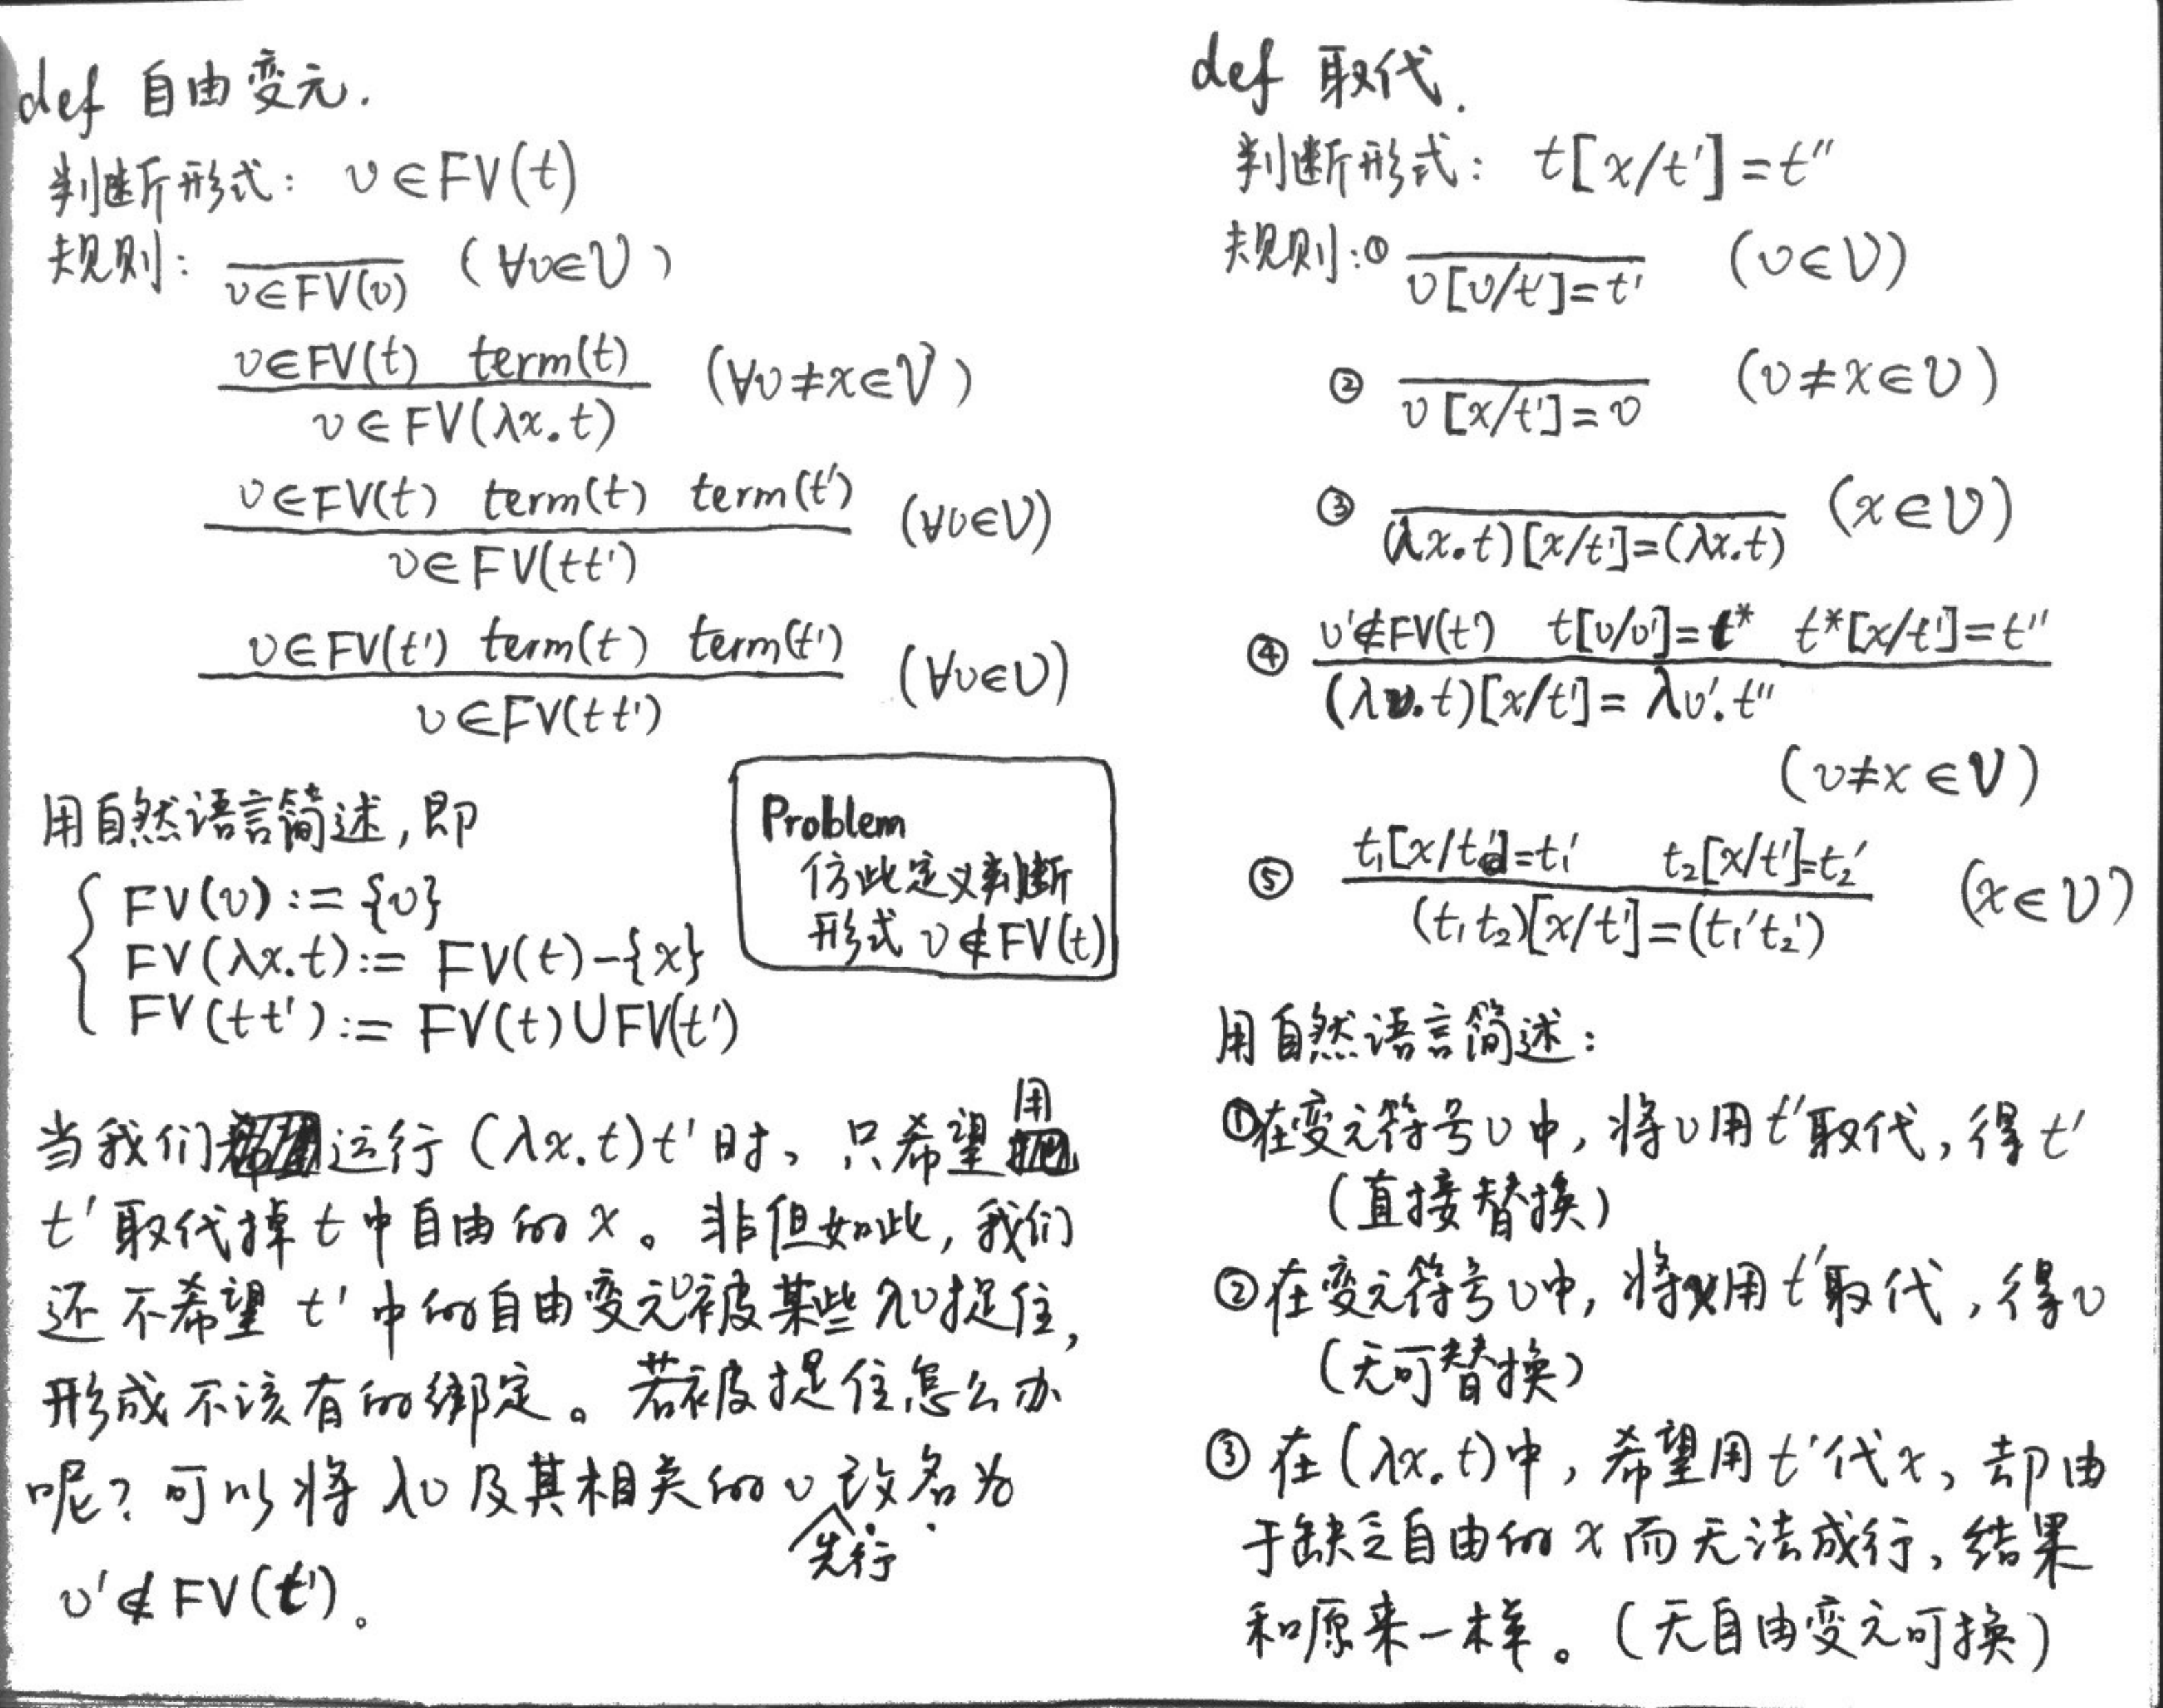 def 自由变元.
判断形式: v∈FV(t)
规则: ――― (∀v∈V)
v∈FV(v)
v∈FV(t) term(t) (∀v≠x∈V)
v∈FV(λx.t)
v∈FV(t) term(t) term(t') (∀v∈V)
v∈FV(tt')
v∈FV(t') term(t) term(t') (∀v∈V)
v∈FV(tt')
用自然语言简述,即
FV(v):={v}
FV(λx.t):= FV(t)-{x}
FV(tt'):= FV(t)∪FV(t')
Problem
仿此定义判断
形式 v∉FV(t)
当我们运行(λx.t)t'时,只希望用
t'取代掉t中自由的x。非但如此,我们
还不希望t'中的自由变元v被某些λv捉住,
形成不该有的绑定。若被捉住怎么办
呢?可以将λv及其相关的v先行改名为
v'∉FV(t')。
def 取代.
判断形式: t[x/t']=t''
规则:① ――― (v∈V)
v[v/t']=t'
② ――― (v≠x∈V)
v[x/t']=v
③ ――― (x∈V)
(λx.t)[x/t']=(λx.t)
④ v'∉FV(t') t[v/v']=t* t*[x/t']=t''
(λv.t)[x/t']= λv'.t''
(v≠x∈V)
⑤ t₁[x/t']=t₁' t₂[x/t']=t₂' (x∈V)
(t₁t₂)[x/t']=(t₁'t₂')
用自然语言简述:
①在变元符号v中,将v用t'取代,得t'
(直接替换)
②在变元符号v中,将x用t'取代,得v
(无可替换)
③在(λx.t)中,希望用t'代x,却由
于缺乏自由的x而无法成行,结果
和原来一样。(无自由变元可换)